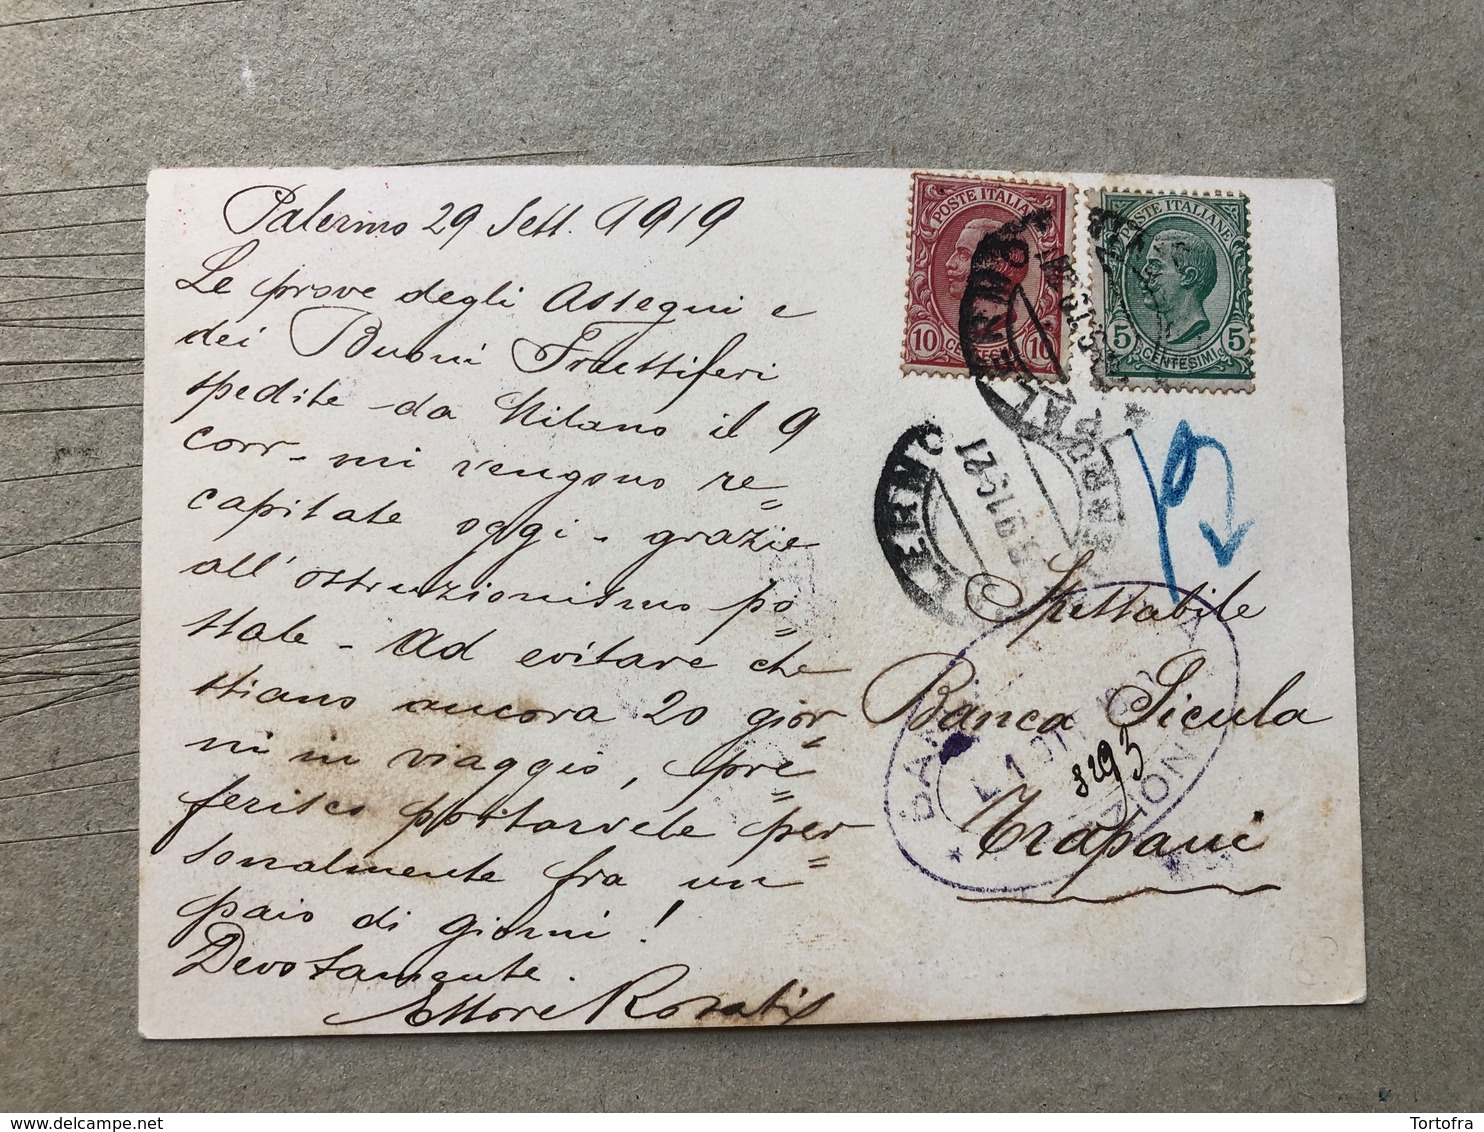 Palermo 29 Sett. 1919
Le prove degli Assegni e
dei Buoni Fruttiferi
spedite da Milano il 9
corr-mi vengono re=
capitate oggi - grazie
all'ostruzionismo po=
stale - Ad evitare che
stiano ancora 20 gior=
ni in viaggio, pre=
ferisco portarvele per=
sonalmente fra un
paio di giorni!
Devotamente.
Ettore Rosati
POSTE ITALIANE
10 CENTESIMI 10
POSTE ITALIANE
5 CENTESIMI 5
PALERMO
Spettabile
Banca Sicula
3293
Trapani
Tortofra